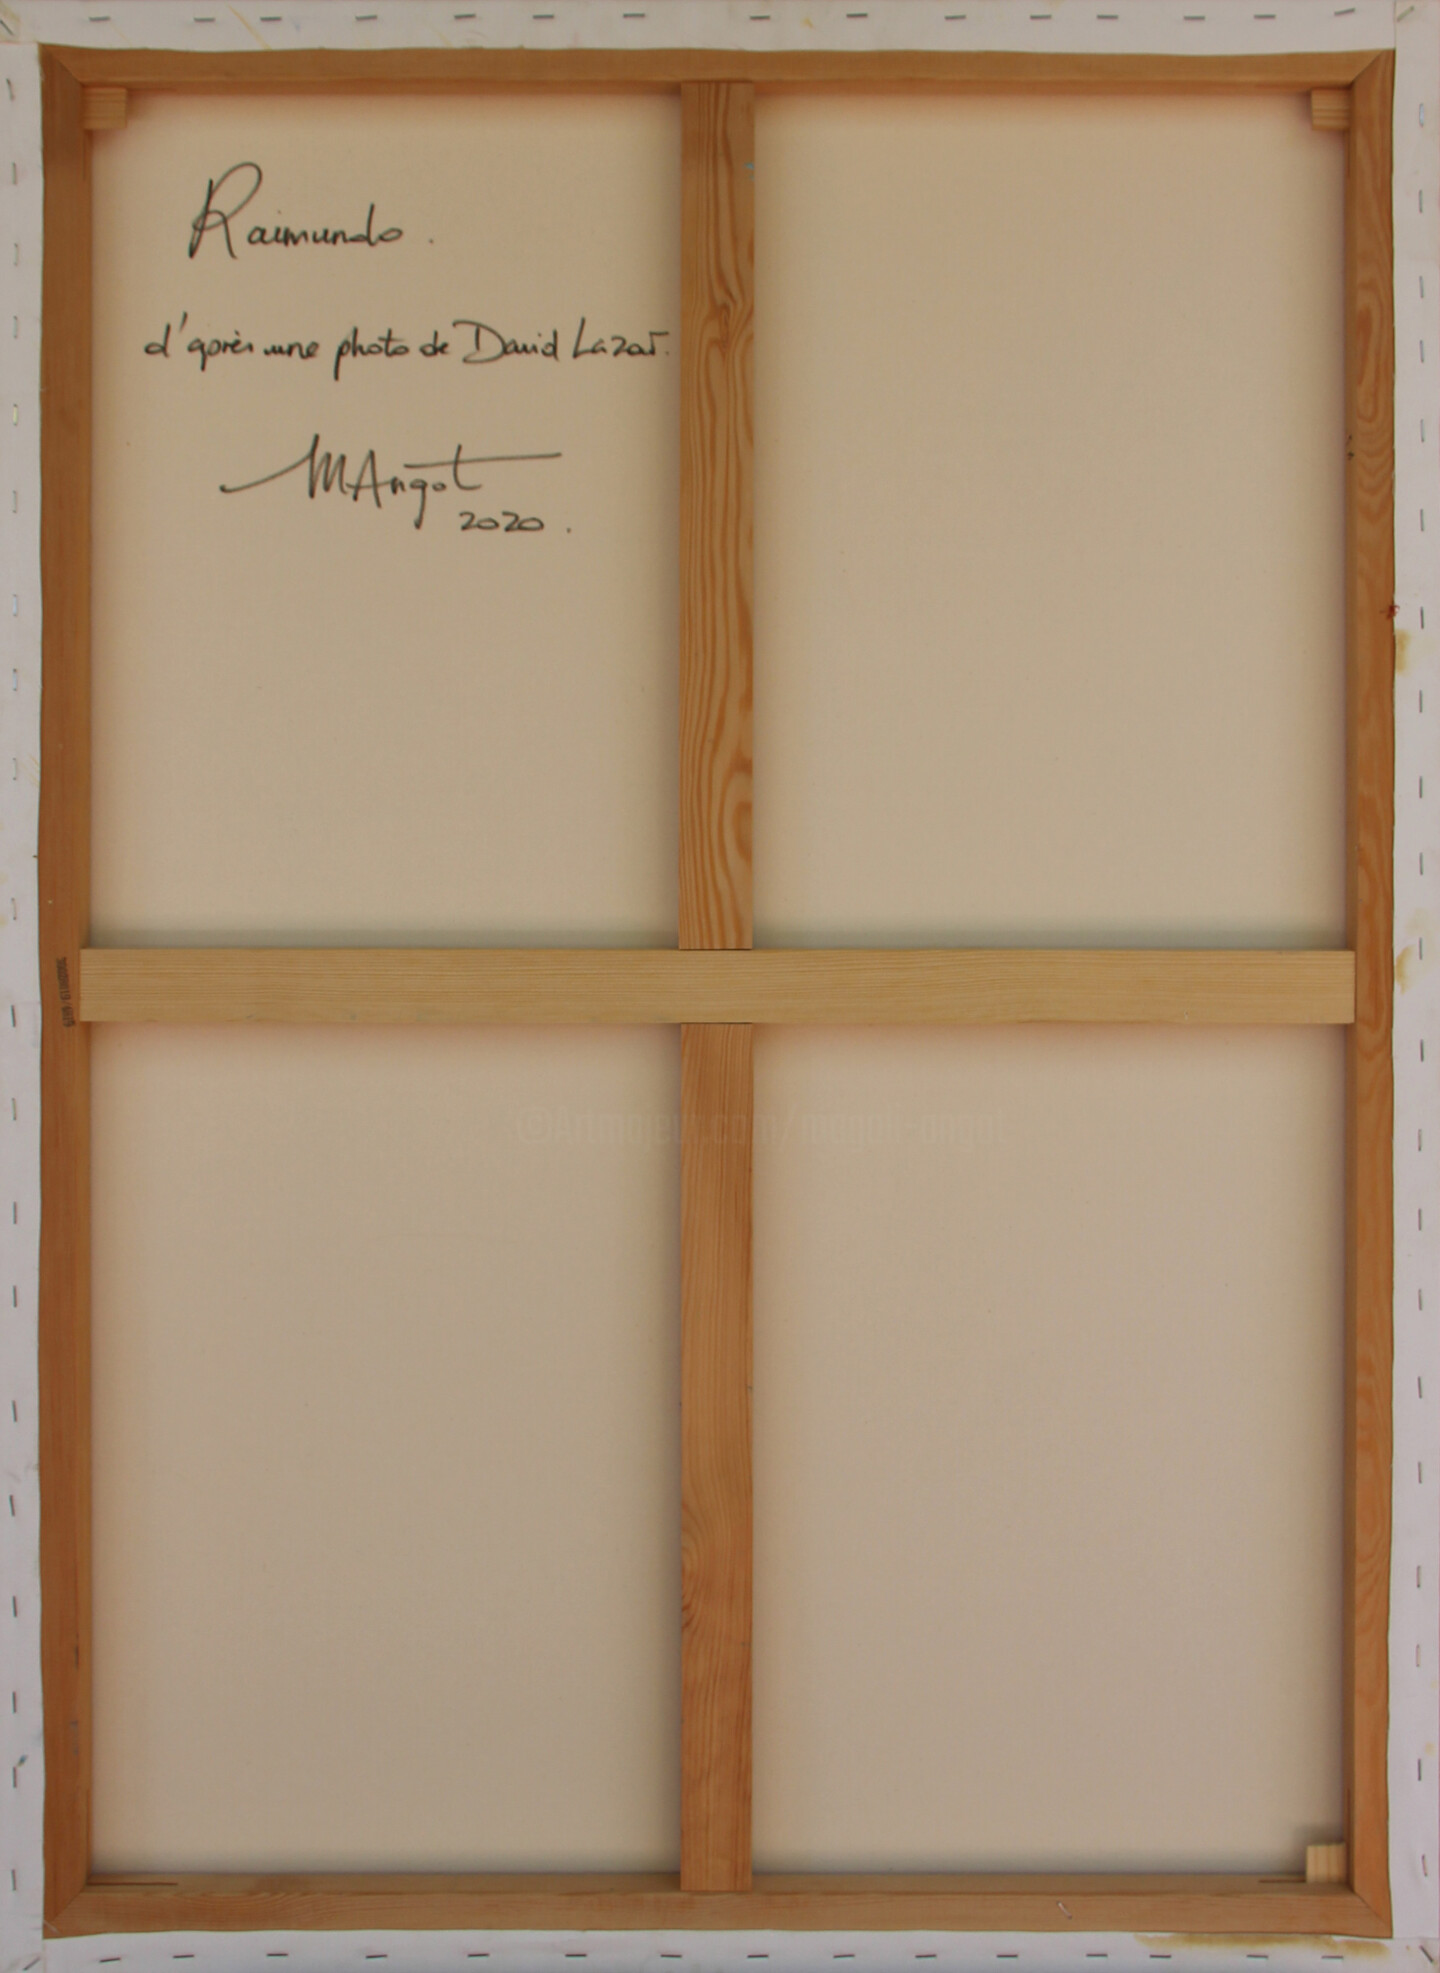 Raimundo.
d'après une photo de David Lazar.
MAngot
2020.
©Artmajeur.com/magali-angot